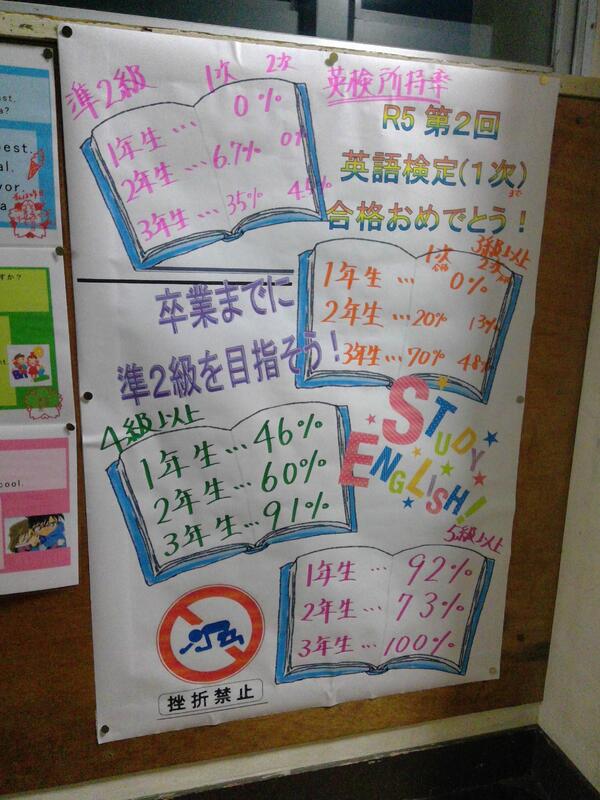 準2級 1次 2次
1年生… 0%
2年生… 6.7% 0%
3年生… 35% 4.4%
英検所持率
R5 第2回
英語検定(1次)
まで
合格おめでとう!
3級以上
1次 2次
1年生… 0%
2年生… 20% 13%
3年生… 70% 48%
卒業までに
準2級を目指そう!
STUDY
ENGLISH!
4級以上
1年生… 46%
2年生… 60%
3年生… 91%
5級以上
1年生… 92%
2年生… 73%
3年生… 100%
挫折禁止
est.
al.
vor.
a
すか?
cool.